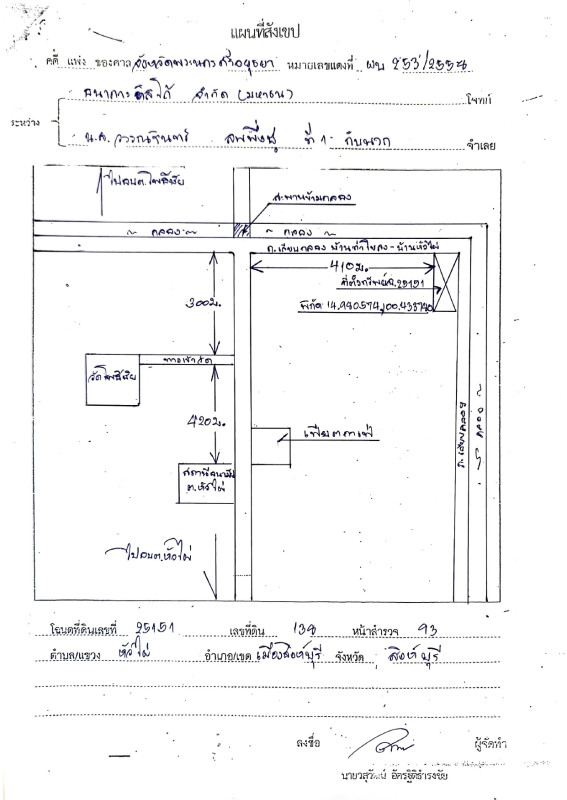 แผนที่สังเขป
คดี แพ่ง ของศาล จังหวัดพระนครศรีอยุธยา หมายเลขแดงที่ ผบ 253/2554
ธนาคารทิสโก้ จำกัด (มหาชน) โจทก์
ระหว่าง
น.ส. ที่ 1 กับพวก จำเลย
ไปถนนต.โพธิ์ชัย
สะพานข้ามคลอง
คลอง
คลอง
ถ.เลียบคลอง บ้าน - บ้านหัวไผ่
410 ม.
ที่ตั้งทรัพย์ฉ.25151
พิกัด 14.990574,
300 ม.
ทางเข้าวัด
วัดโพธิ์ชัย
420 ม.
สถานีอนามัย
ต.หัวไผ่
ถ.เลียบคลอง
คลอง
ไปถนนต.หัวไผ่
โฉนดที่ดินเลขที่ 25151 เลขที่ดิน 138 หน้าสำรวจ 93
ตำบล/แขวง หัวไผ่ อำเภอ/เขต เมืองสิงห์บุรี จังหวัด สิงห์บุรี
ลงชื่อ ผู้จัดทำ
นายวสุวัฒน์ อัครฐิติธำรงชัย